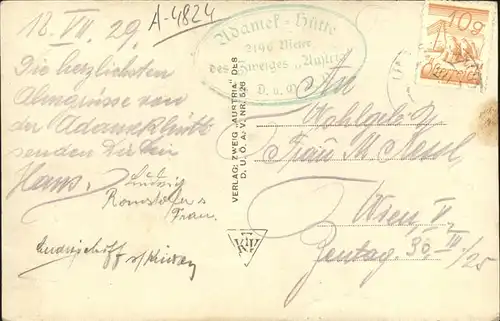 18. VII. 29.
A-4824
Adamek-Hütte
2196 Meter
des Zweiges „Austria"
D. u. Ö.
10g
Die herzlichsten
Almgrüsse von
der Adamekhütte
senden Dir
Hans,
Ludwig
Frau.
VERLAG: ZWEIG „AUSTRIA" DES
D. U. Ö. A. V. NR. 526
An
Wohlgeb.
Frau M.
Wien, V.
Zentag. 30, III/25